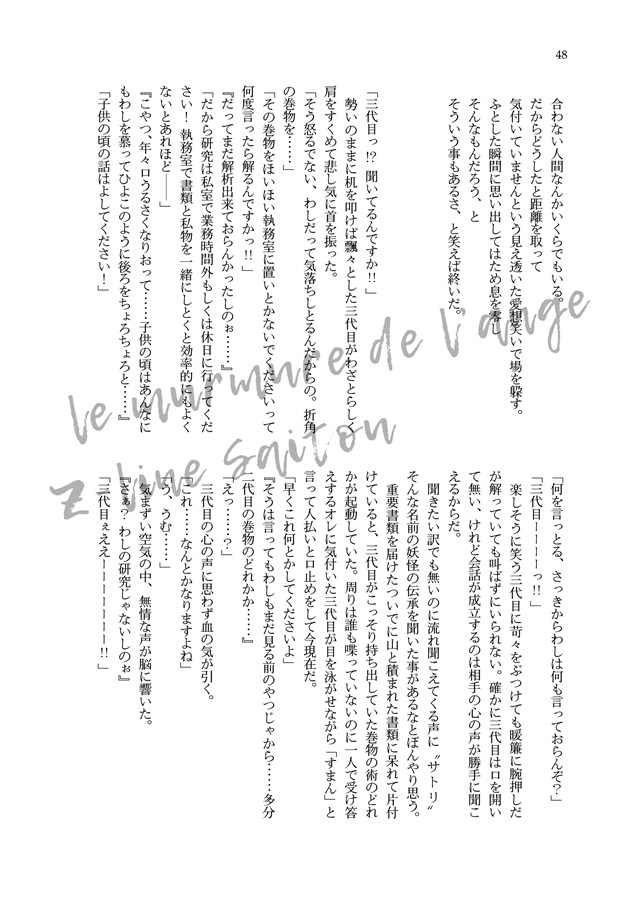 48
合わない人間なんかいくらでもいる。
だからどうしたと距離を取って
気付いていませんという見え透いた愛想笑いで場を躱す。
ふとした瞬間に思い出してはため息を零し
そんなもんだろう、と
そういう事もあるさ、と笑えば終いだ。
「三代目っ!? 聞いてるんですか!!」
勢いのままに机を叩けば飄々とした三代目がわざとらしく
肩をすくめて悲し気に首を振った。
「そう怒るでない、わしだって気落ちしとるんだからの。折角
の巻物を……」
「その巻物をほいほい執務室に置いとかないでくださいって
何度言ったら解るんですかっ!!」
『だってまだ解析出来ておらんかったしのぉ……』
「だから研究は私室で業務時間外もしくは休日に行ってくだ
さい! 執務室で書類と私物を一緒にしとくと効率的にもよく
ないとあれほど――」
『こやつ、年々口うるさくなりおって……子供の頃はあんなに
もわしを慕ってひよこのように後ろをちょろちょろと……』
「子供の頃の話はよしてください!」
「何を言っとる、さっきからわしは何も言っておらんぞ?」
「三代目ーーーーっ!!」
楽しそうに笑う三代目に苛々をぶつけても暖簾に腕押しだ
が解っていても叫ばずにいられない。確かに三代目は口を開い
て無い、けれど会話が成立するのは相手の心の声が勝手に聞こ
えるからだ。
聞きたい訳でも無いのに流れ聞こえてくる声に〝サトリ〟
そんな名前の妖怪の伝承を聞いた事があるなとぼんやり思う。
重要書類を届けたついでに山と積まれた書類に呆れて片付
けていると、三代目がこっそり持ち出していた巻物の術のどれ
かが起動していた。周りは誰も喋っていないのに一人で受け答
えするオレに気付いた三代目が目を泳がせながら「すまん」と
言って人払いと口止めをして今現在だ。
「早くこれ何とかしてくださいよ」
『そうは言ってもわしもまだ見る前のやつじゃから……多分
二代目の巻物のどれかか……』
「えっ……?」
三代目の心の声に思わず血の気が引く。
「これ……なんとかなりますよね」
「う、うむ……」
気まずい空気の中、無情な声が脳に響いた。
『さぁ? わしの研究じゃないしのぉ』
「三代目ぇええーーーーーーー!!」
le murmure de l'ange
Z bine Saitou